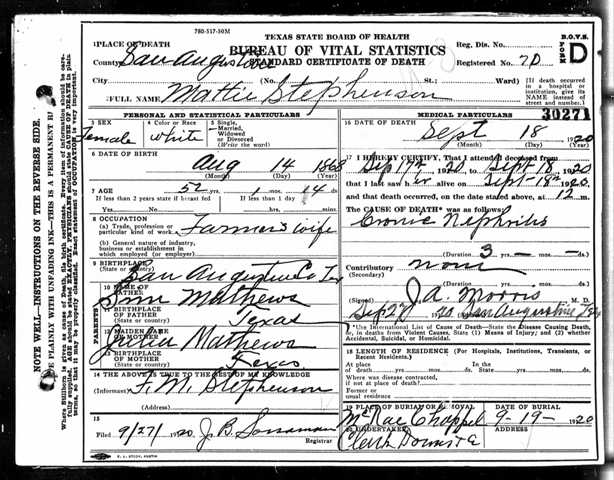 780-517-50M
TEXAS STATE BOARD OF HEALTH
BUREAU OF VITAL STATISTICS
STANDARD CERTIFICATE OF DEATH
B.O.V.S.
FORM D
1 PLACE OF DEATH
County San Augustine
Reg. Dis. No.
Registered No. 7D
City (No. St.: Ward)
(If death occurred in a hospital or institution, give its NAME instead of street and number.)
2 FULL NAME Mattie Stephenson
30271
PERSONAL AND STATISTICAL PARTICULARS
3 SEX Female
4 Color or Race white
5 Single, Married, Widowed or Divorced (Write the word)
6 DATE OF BIRTH
Aug 14 1868
(Month) (Day) (Year)
7 AGE 52 yrs. 1 mos. 14 ds.
If less than 2 years state if breast fed If less than 1 day
8 OCCUPATION
(a) Trade, profession or particular kind of work Farmers wife
(b) General nature of industry, business or establishment in which employed (or employer)
9 BIRTHPLACE (State or country) San Augustine Co Tex
10 NAME OF FATHER Mathews
11 BIRTHPLACE OF FATHER (State or country) Texas
12 MAIDEN NAME OF MOTHER Julia Mathews
13 BIRTHPLACE OF MOTHER (State or country) Texas
PARENTS
14 THE ABOVE IS TRUE TO THE BEST OF MY KNOWLEDGE
(Informant) F. M. Stephenson
(Address)
15
Filed 9/27/1920 J. B. Sossaman
Registrar
MEDICAL PARTICULARS
16 DATE OF DEATH
Sept 18 1920
(Month) (Day) (Year)
17 I HEREBY CERTIFY, That I attended deceased from
Sep 17th, 1920 Sept 18 1920
that I last saw her alive on Sept 18th 1920
and that death occurred, on the date stated above, at 12 m.
The CAUSE OF DEATH* was as follows:
Cronic Nephritis
(Duration) 3 — —
Contributory none
(Secondary)
(Duration) yrs. mos. ds.
(Signed) J. A. Morris M. D.
Sep 27 1920 San Augustine Tex
*Use International List of Cause of Death—State the Disease Causing Death, or, in deaths from Violent Causes, State (1) Means of Injury; and (2) whether Accidental, Suicidal, or Homicidal.
18 LENGTH OF RESIDENCE (For Hospitals, Institutions, Transients, or Recent Residents.)
At place of death yrs. mos. ds. State yrs. mos. ds.
Where was disease contracted, if not at place of death?
Former or usual residence
19 PLACE OF BURIAL OR REMOVAL DATE OF BURIAL
McRae Chappel 9-19-1920
20 UNDERTAKER ADDRESS
Clark Downs
NOTE WELL—INSTRUCTIONS ON THE REVERSE SIDE.
PLAINLY WITH UNFADING INK—THIS IS A PERMANENT